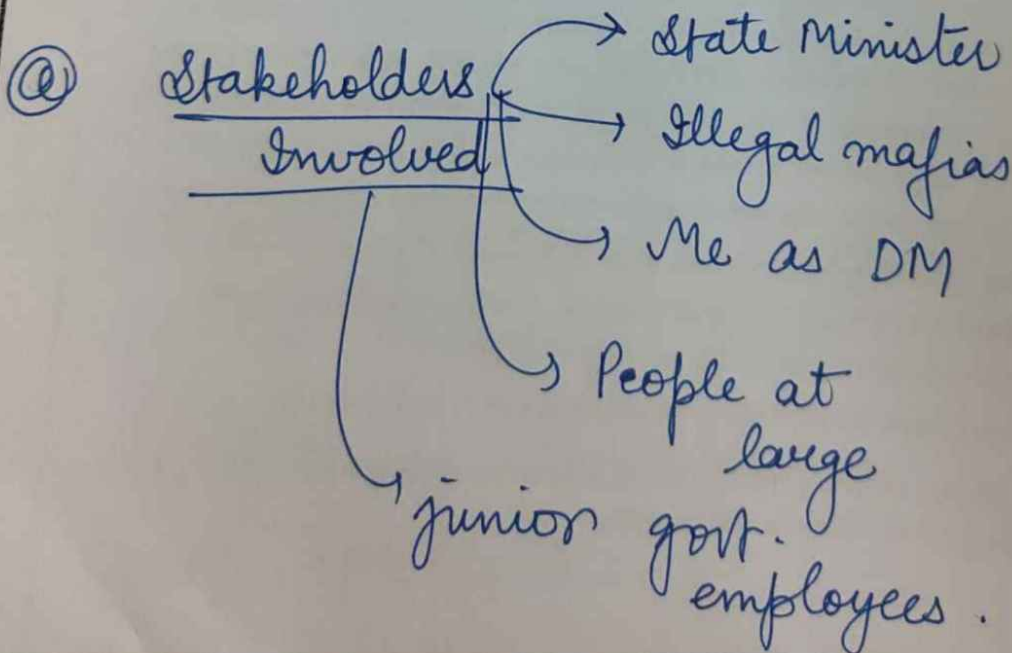 @ Stakeholders
Involved
State Minister
Illegal mafias
Me as DM
People at
large
junior govt.
employees.